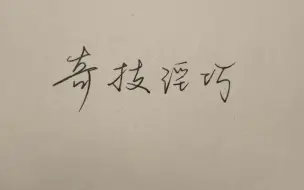 奇技淫巧